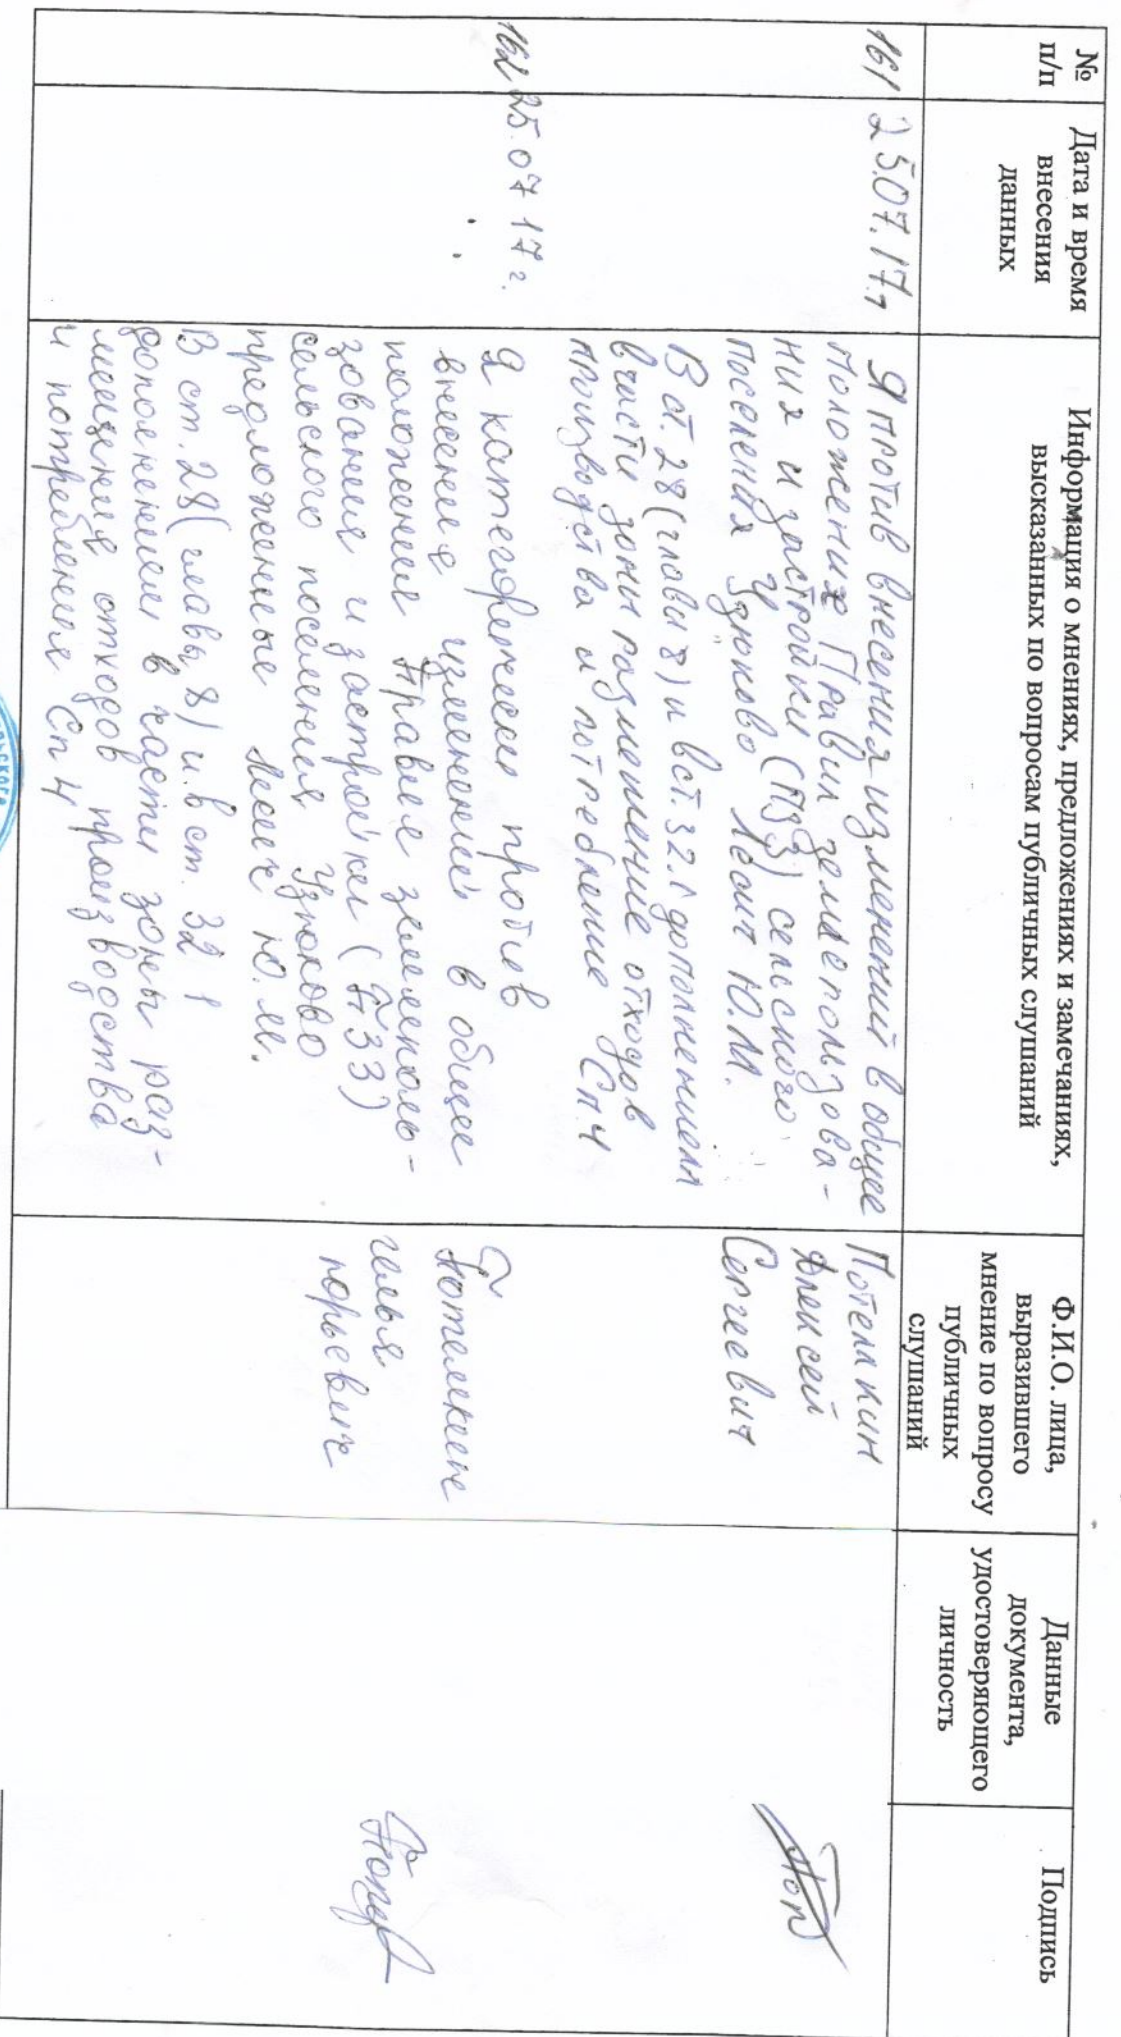 №
п/п
Дата и время
внесения
данных
Информация о мнениях, предложениях и замечаниях,
высказанных по вопросам публичных слушаний
Ф.И.О. лица,
выразившего
мнение по вопросу
публичных
слушаний
Данные
документа,
удостоверяющего
личность
Подпись
161
25.07.17г
Я против внесения изменений в общее
положение Правил землепользова-
ния и застройки (ПЗЗ) сельского
поселения Узюково Леонт Ю.М.
В ст. 28 (главы 8) и в ст. 32.1 дополнением
в части зоны размещение отходов
производства и потребление Сп4
Потемкин
Алексей
Сергеевич
162
25.07 17г.
Я категорически против
внесение изменений в общее
положения Правил землеполь-
зования и застройки (ПЗЗ)
сельского поселения Узюково
предложенные Ю.М.
В ст. 28 (главы 8) и в ст. 32 1
дополнении в части зоны раз-
мещения отходов производства
и потребления Сп 4
Потемкин
Илья
Юрьевич